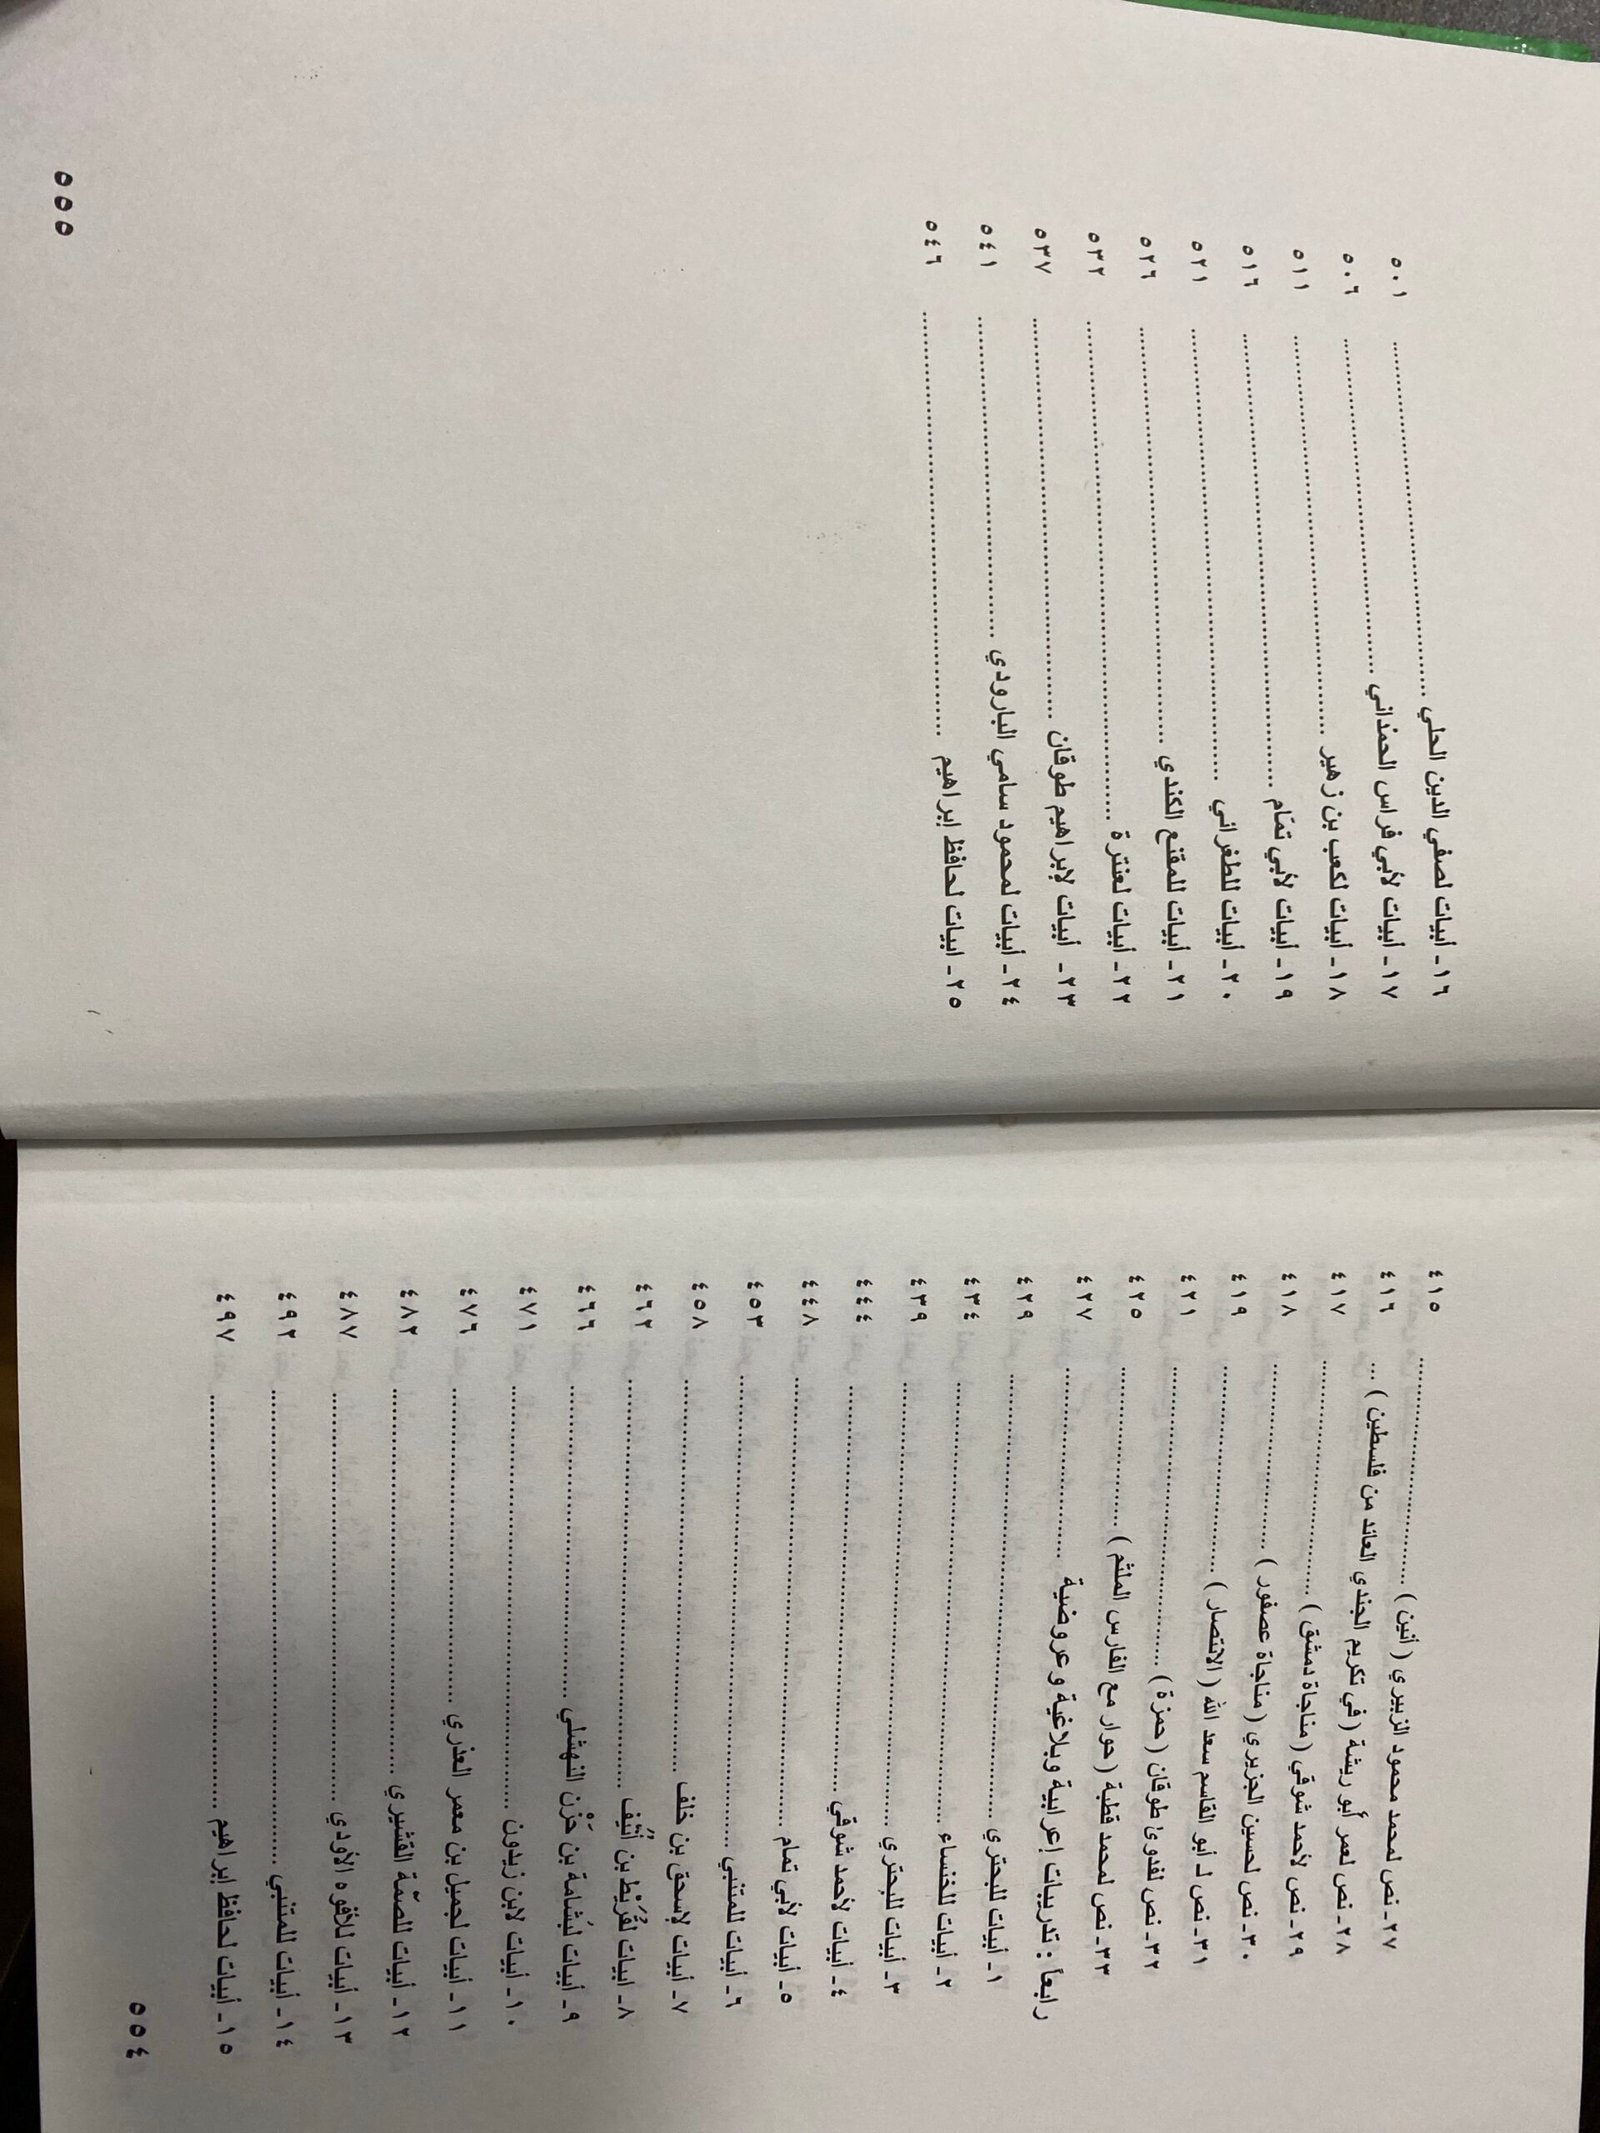 ٢٧ـ نص لمحمد محمود الزبيري ( أنين ) ........................ ٤١٥
٢٨ـ نص لعمر أبو ريشة ( في تكريم الجندي العائد من فلسطين ) ... ٤١٦
٢٩ـ نص لأحمد شوقي ( مناجاة دمشق ) ........................ ٤١٧
٣٠ـ نص لحسين الجزيري ( مناجاة عصفور ) ........................ ٤١٨
٣١ـ نص لـ أبو القاسم سعد الله ( الانتصار ) ........................ ٤١٩
٣٢ـ نص لفدوى طوقان ( حمزة ) ........................ ٤٢١
٣٣ـ نص لمحمد قطبة ( حوار مع الفارس الملثم ) ........................ ٤٢٥
رابعاً : تدريبات إعرابية وبلاغية وعروضية ........................ ٤٢٧
١ـ أبيات للبحتري ........................ ٤٢٩
٢ـ أبيات للخنساء ........................ ٤٣٤
٣ـ أبيات للبحتري ........................ ٤٣٩
٤ـ أبيات لأحمد شوقي ........................ ٤٤٤
٥ـ أبيات لأبي تمام ........................ ٤٤٨
٦ـ أبيات للمتنبي ........................ ٤٥٣
٧ـ أبيات لإسحق بن خلف ........................ ٤٥٨
٨ـ أبيات لقُرَيْط بن أُنَيْف ........................ ٤٦٢
٩ـ أبيات لبَشامة بن حَزْن النهشلي ........................ ٤٦٦
١٠ـ أبيات لابن زيدون ........................ ٤٧١
١١ـ أبيات لجميل بن معمر العذري ........................ ٤٧٦
١٢ـ أبيات للصمّة القشيري ........................ ٤٨٢
١٣ـ أبيات للأفوه الأودي ........................ ٤٨٧
١٤ـ أبيات للمتنبي ........................ ٤٩٢
١٥ـ أبيات لحافظ إبراهيم ........................ ٤٩٧
٥٥٤
١٦ـ أبيات لصفي الدين الحلي ........................ ٥٠١
١٧ـ أبيات لأبي فراس الحمداني ........................ ٥٠٦
١٨ـ أبيات لكعب بن زهير ........................ ٥١١
١٩ـ أبيات لأبي تمّام ........................ ٥١٦
٢٠ـ أبيات للطغرائي ........................ ٥٢١
٢١ـ أبيات للمقنع الكندي ........................ ٥٢٦
٢٢ـ أبيات لعنترة ........................ ٥٣٢
٢٣ـ أبيات لإبراهيم طوقان ........................ ٥٣٧
٢٤ـ أبيات لمحمود سامي البارودي ........................ ٥٤١
٢٥ـ ابيات لحافظ إبراهيم ........................ ٥٤٦
٥٥٥